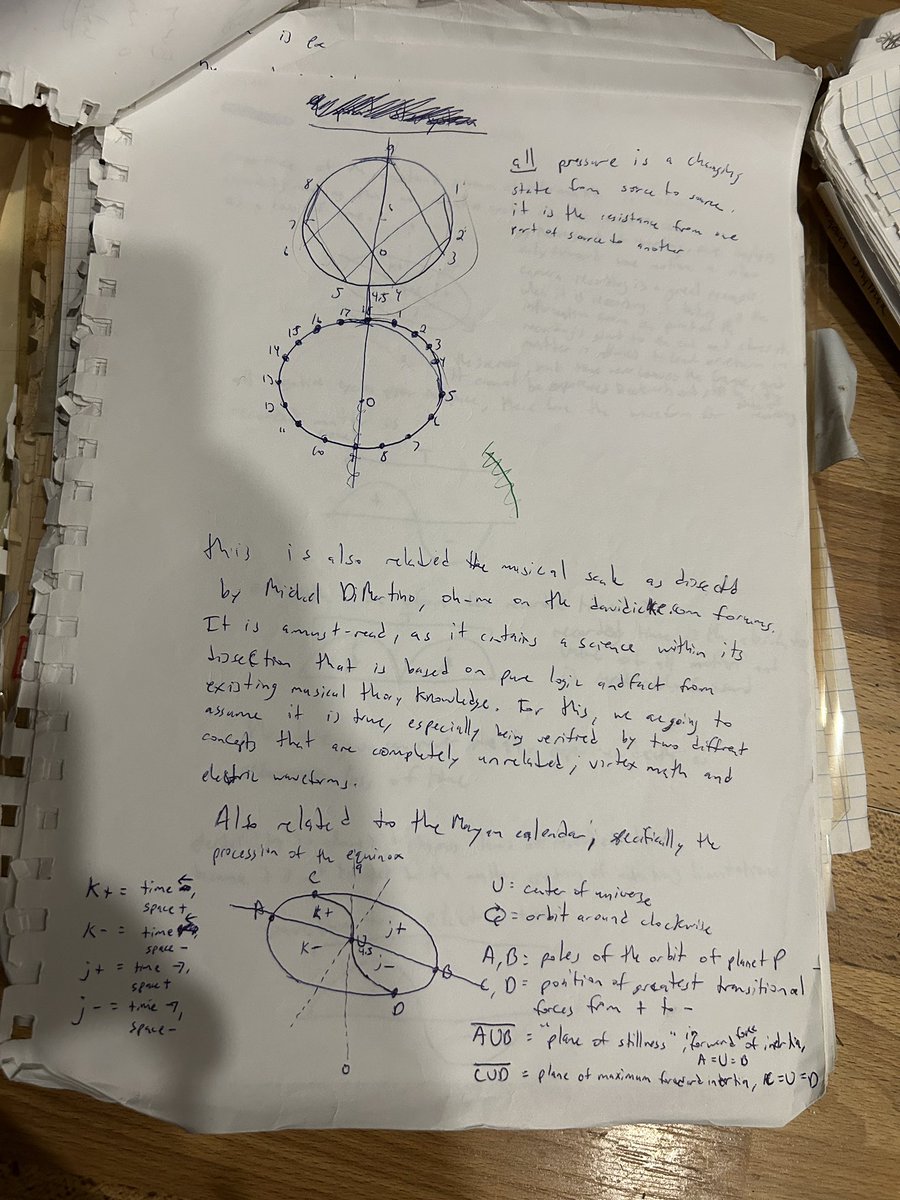 9
8
1
7
2
6
3
0
5
4.5
4
all pressure is a changing
state from sorce to source.
it is the resistance from one
part of source to another
18
17
1
16
2
15
3
14
4
13
0
5
12
6
11
7
10
9
8
this is also related the musical scale as
by Michael DiMartino, oh-me on the davidicke.com forums.
It is a must-read, as it contains a science within its
disection that is based on pure logic and fact from
existing musical theory knowledge. For this, we are going to
assume it is true, especially being verified by two diffrent
concepts that are completely unrelated; vortex math and
electric waveforms.
Also related to the Mayan calendar, specifically the
procession of the equinox
K+ = time ←,
space +
K- = time ←,
space -
j+ = time →,
space +
j- = time →,
space -
9
C
A
K+
j+
U
K-
4.5
j-
B
D
0
U = center of universe
= orbit around clockwise
A, B = poles of the orbit of planet P
C, D = position of greatest transitional
forces from + to -
AUB = "plane of stillness", in forward force of inertia,
A = U = B
CUD = plane of maximum forward inertia, C = U = D